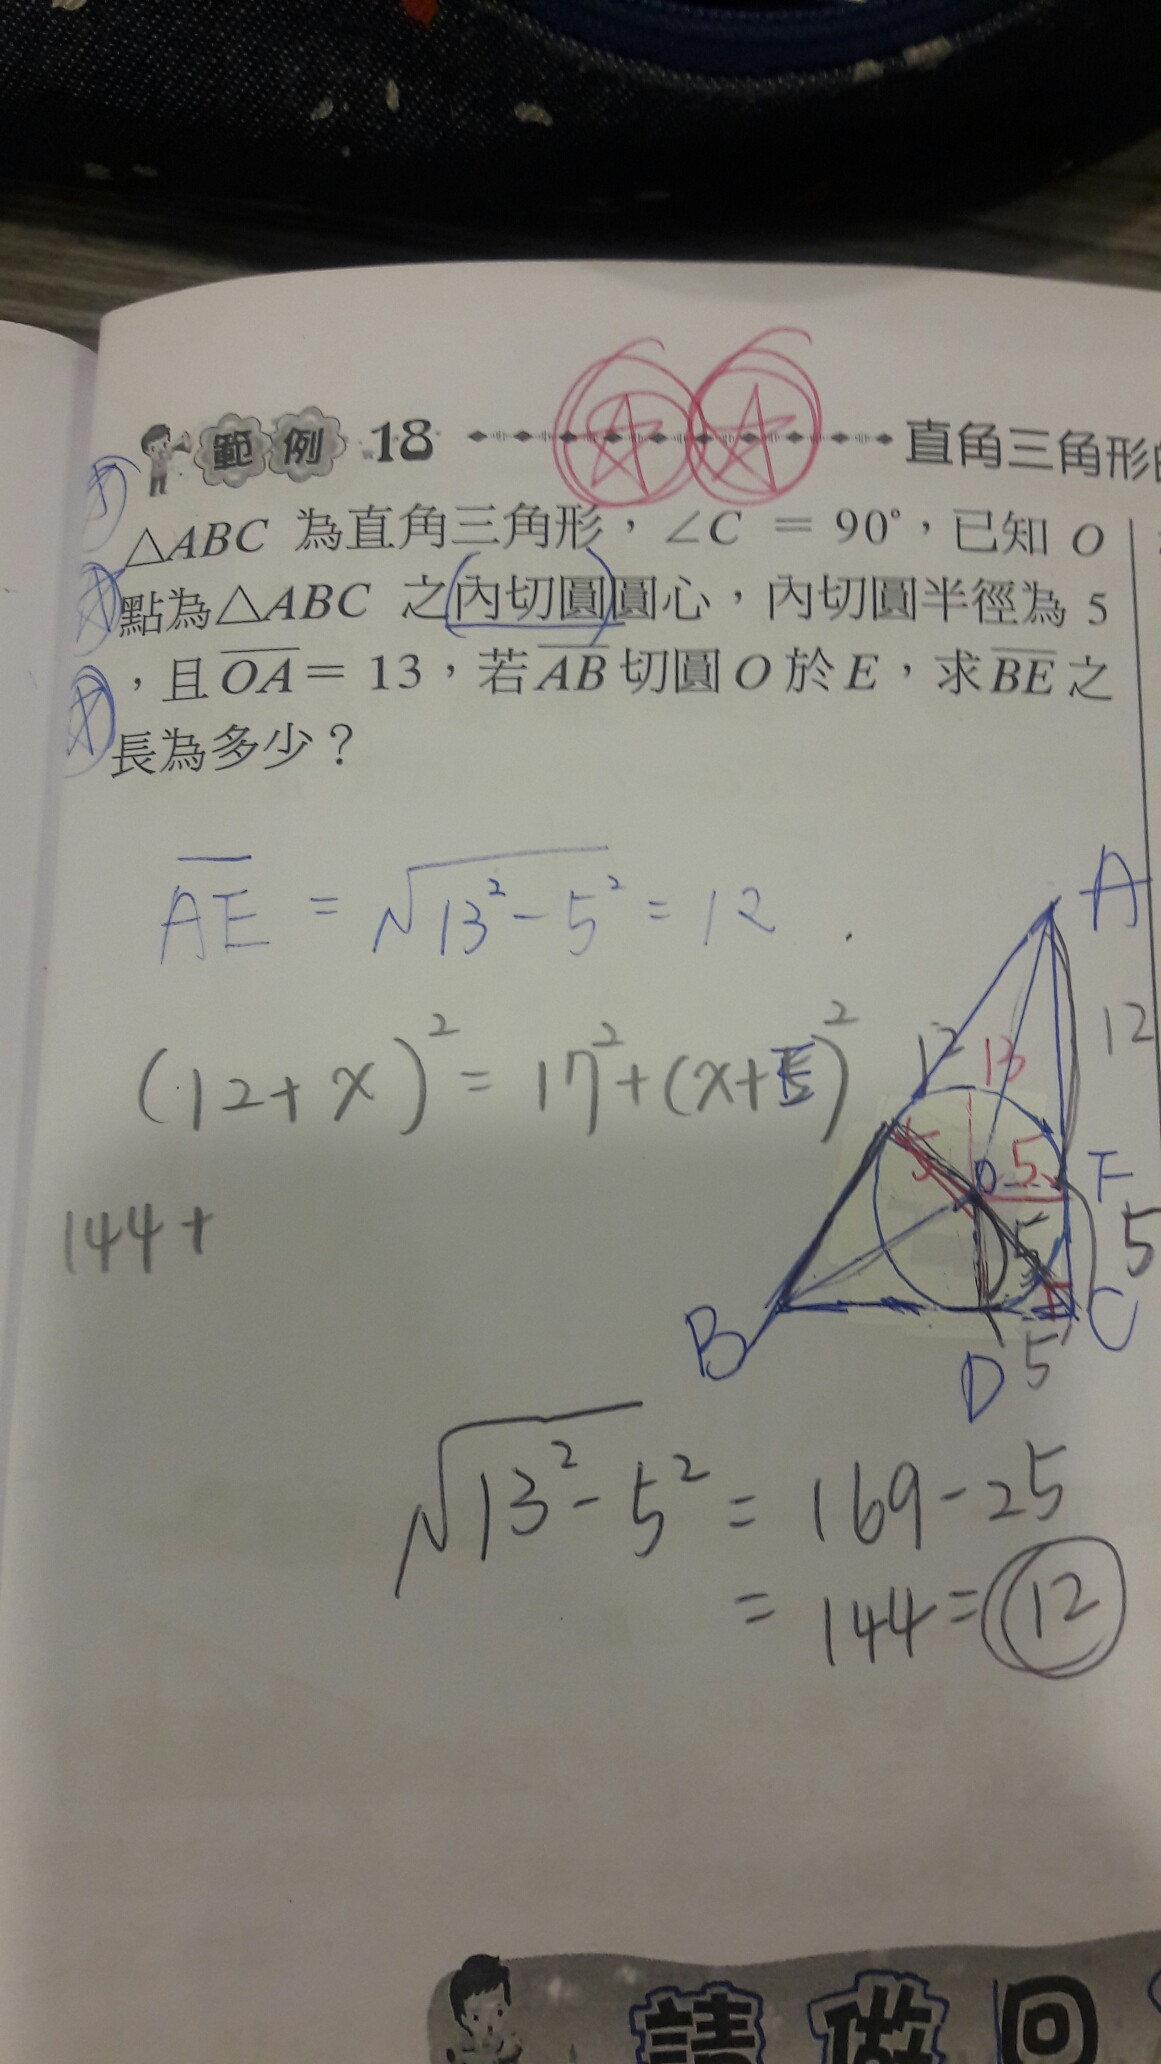 範例 18 直角三角形
△ABC 為直角三角形，∠C = 90°，已知 O
點為△ABC 之內切圓圓心，內切圓半徑為 5
，且 OA = 13，若 AB 切圓 O 於 E，求 BE 之
長為多少？
AE = √13²-5² = 12
(12+x)² = 17²+(x+5)²
144+
A
12
12
13
5
O
5
F
5
5
B
C
D
5
√13²-5² = 169-25
= 144 = 12
請做回